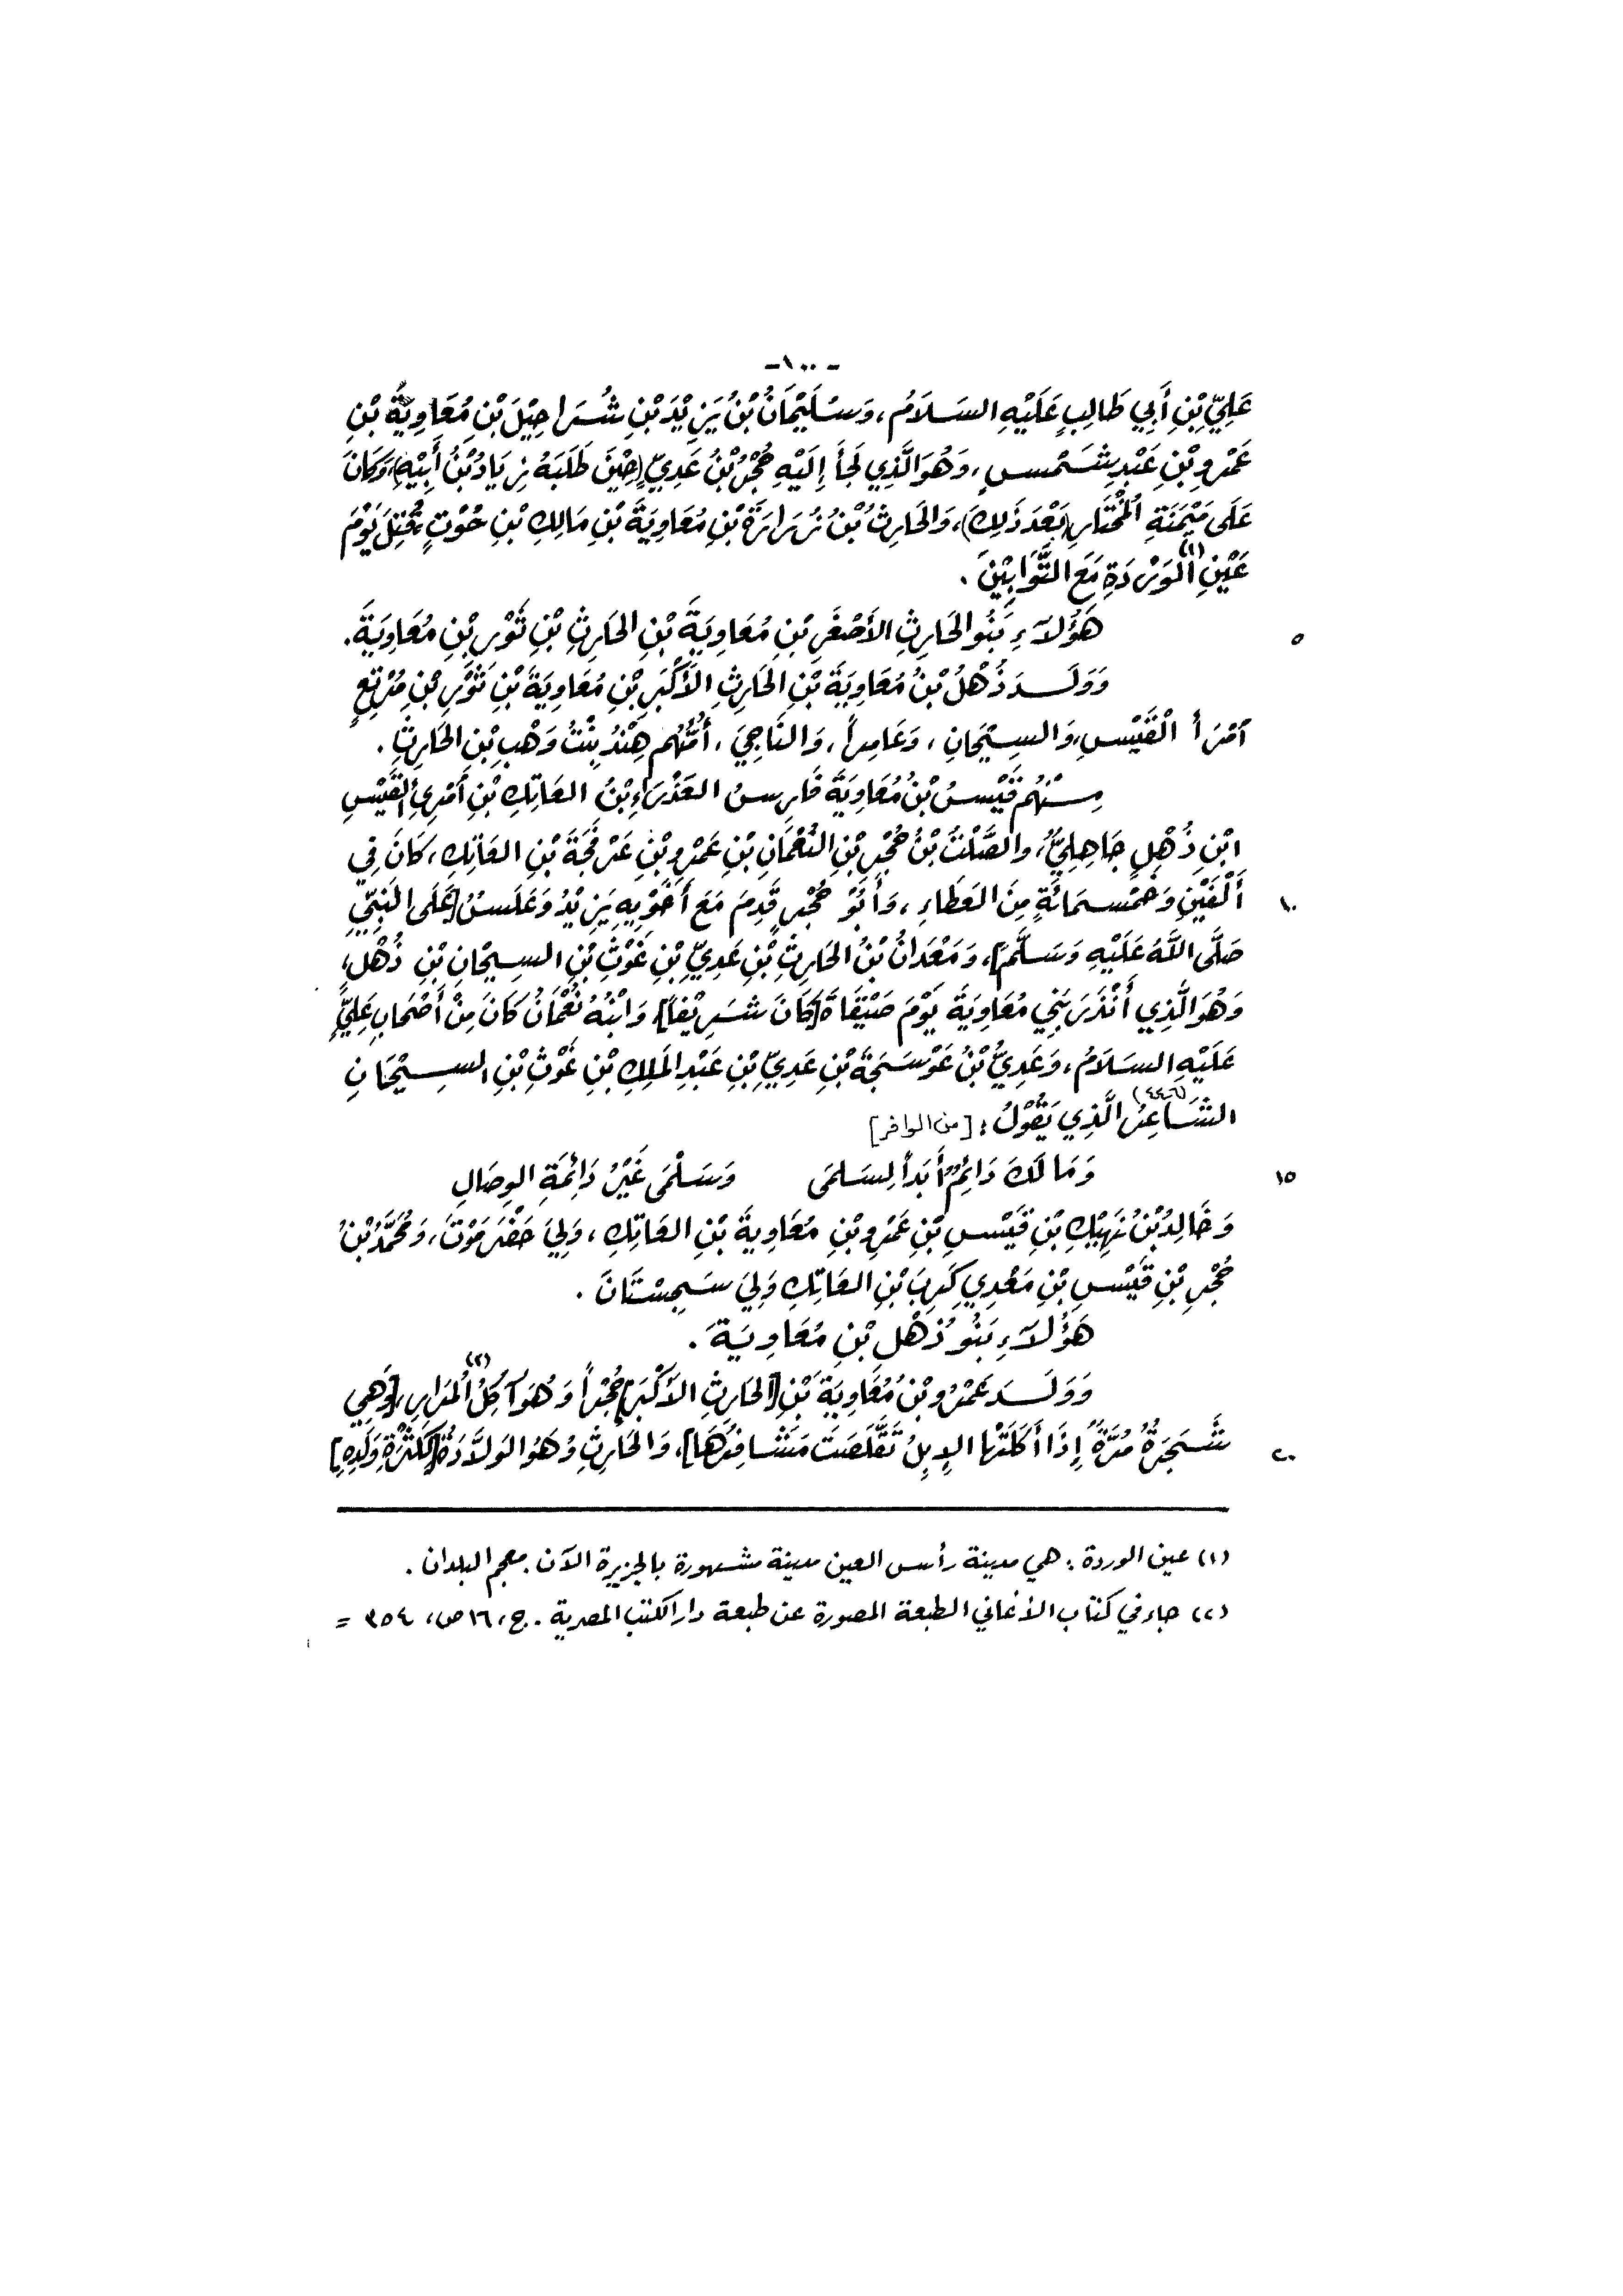 -١٠٠-
عَلِيِّ بْنِ أَبِي طَالِبٍ عَلَيْهِ السَلَامُ، وَسُلَيْمَانُ بْنُ يَزِيْدَ بْنِ شُرَاحِيْلَ بْنِ مُعَاوِيَةَ بْنِ
عَمْرِو بْنِ عَبْدِ شَمْسٍ، وَهُوَ الَّذِي لَجَأَ إِلَيْهِ حُجْرُ بْنُ عَدِيٍّ (حِيْنَ طَلَبَهُ زِيَادُ بْنُ أَبِيْهِ)، وَكَانَ
عَلَى مَيْمَنَةِ الْمُخْتَارِ (بَعْدَ ذَلِكَ)، وَالحَارِثُ بْنُ زُرَارَةَ بْنِ مُعَاوِيَةَ بْنِ مَالِكِ بْنِ حُوْتٍ قُتِلَ يَوْمَ
عَيْنِ (١) الْوَرْدَةِ مَعَ التَّوَّابِيْنَ.
٥ هَؤُلَاءِ بَنُو الحَارِثِ الأَصْغَرِ بْنِ مُعَاوِيَةَ بْنِ الحَارِثِ بْنِ ثَوْرِ بْنِ مُعَاوِيَةَ.
وَوَلَدَ ذُهْلُ بْنُ مُعَاوِيَةَ بْنِ الحَارِثِ الأَكْبَرِ بْنِ مُعَاوِيَةَ بْنِ ثَوْرِ بْنِ مُرْتِعٍ
آمْرَأَ الْقَيْسِ، وَالسِيْحَانِ، وَعَامِراً، وَالنَاجِيَ، أُمُّهُم هِنْدُ بِنْتُ وَهْبِ بْنِ الحَارِثِ.
مِنْهُم قَيْسُ بْنُ مُعَاوِيَةَ فَارِسُ العَذْرَاءِ بْنُ العَاتِكِ بْنِ آمْرِئِ القَيْسِ
ابْنِ ذُهْلٍ جَاهِلِيٌّ، والصَّلْتُ بْنُ حُجْرِ بْنِ النُعْمَانِ بْنِ عَمْرِو بْنِ عَرْفَجَةَ بْنِ العَاتِكِ، كَانَ فِي
١٠ أَلْفَيْنِ وَخَمْسِمَائَةٍ مِنَ العَطَاءِ، وَأَبُوْ حُجْرٍ قَدِمَ مَعَ أَخَوْيهِ يَزِيْدُ وَعَلَسُ [عَلَى النَبِيِّ
صَلَّى اللَّهُ عَلَيْهِ وَسَلَّمَ]، وَمَعْدَانُ بْنُ الحَارِثِ بْنِ عَدِيِّ بْنِ غَوْثِ بْنِ السِيْحَانِ بْنِ ذُهْلٍ،
وَهُوَ الَّذِي أَنْذَرَ بَنِي مُعَاوِيَةَ يَوْمَ صَيْقَاةَ [كَانَ شَرِيْفاً]، وَابْنُهُ نُعْمَانُ كَانَ مِنْ أَصْحَابِ عَلِيٍّ
عَلَيْهِ السَلَامُ، وَعَدِيُّ بْنُ عَوْسَجَةَ بْنِ عَدِيِّ بْنِ عَبْدِ المَلِكِ بْنِ غَوْثِ بْنِ السِيْحَانِ
الشَاعِرُ (٤٤٦) الَّذِي يَقُوْلُ: [من الوافر]
١٥ وَمَا لَكَ دَائِمٌ أَبَداً لِسَلمَى وَسَلْمَى غَيْرُ دَائِمَةِ الوِصَالِ
وَخَالِدُ بْنُ نَهِيْكِ بْنِ قَيْسِ بْنِ عَمْرِو بْنِ مُعَاوِيةَ بْنِ العَاتِكِ، وَلِيَ حَضْرَمَوْتَ، وَمُحَمَّدُ بْنُ
حُجْرِ بْنِ قَيْسِ بْنِ مَعْدِي كَرِبَ بْنِ العَاتِكِ وَلِيَ سَجِسْتَانَ.
هَؤُلَاءِ بَنُو ذُهْلِ بْنِ مُعَاوِيَةَ.
وَوَلَدَ عَمْرُو بْنُ مُعَاوِيَةَ بْنِ [الحَارِثِ الأَكْبَرِ] حُجْراً وَهُوَ آكِلُ الْمُرَارِ (٢)، [وَهِي
٢٠ شَجَرَةٌ مُرَّةٌ إِذَا أَكَلَتْهَا الإِبِلُ تَقَلَّصَت مَشَافِرُهَا]، وَالحَارِثِ وَهُوَ الوَلَّادَةُ [لِكَثْرَةِ وَلَدِهِ]
(١) عين الوردة: هي مدينة رأس العين مدينة مشهورة بالجزيرة الآن. معجم البلدان.
(٢) جاء في كتاب الأغاني الطبعة المصورة عن طبعة دار الكتب المصرية. ج، ١٦ ص، ٣٥٤ =